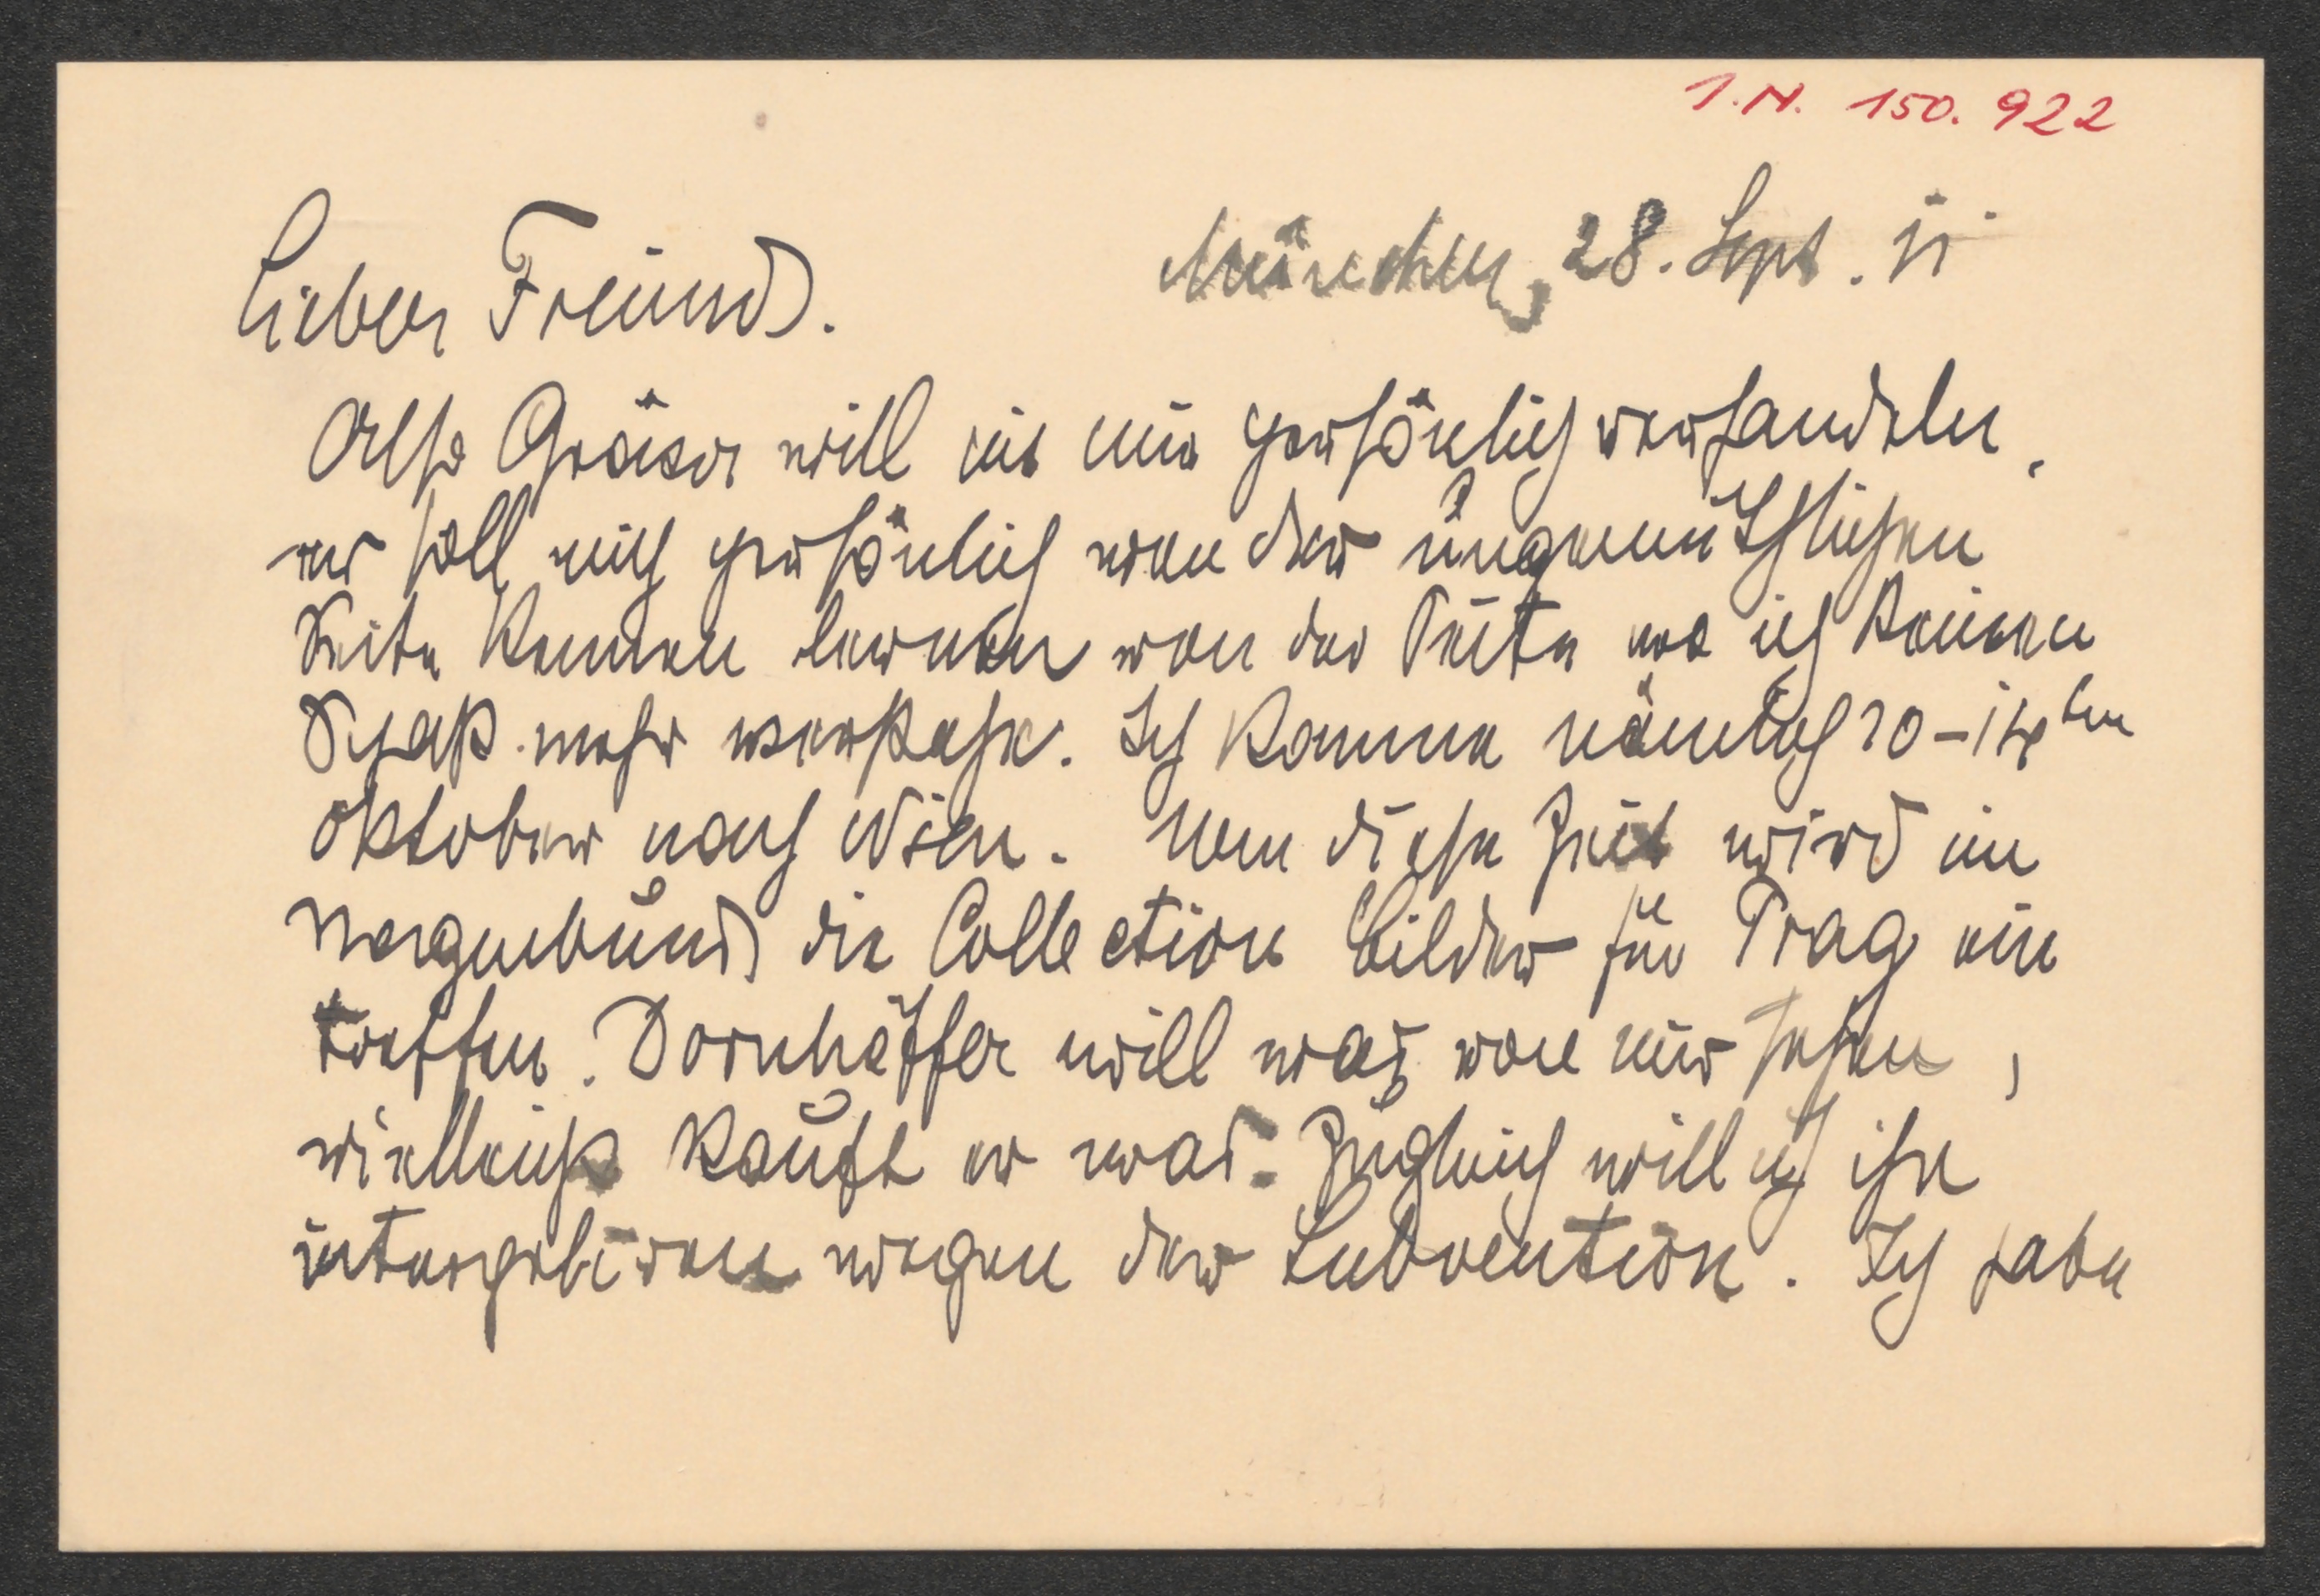 I.N. 150.922
München, 28. Sept. 11
Lieber Freund.
Also Gräser will mit mir persönlich verhandeln,
er soll mich persönlich von der ungemütlichen
Seite kennen lernen von der Seite wo ich keinen
Spaß mehr verstehe. Ich komme nämlich 10–14ten
Oktober nach Wien. Um diese Zeit wird im
Hagenbund die Collection Bilder für Prag ein
treffen. Dornhöffer will was von mir sehen,
vielleicht kauft er was. Zugleich will ich ihn
wegen der Subvention. Ich habe